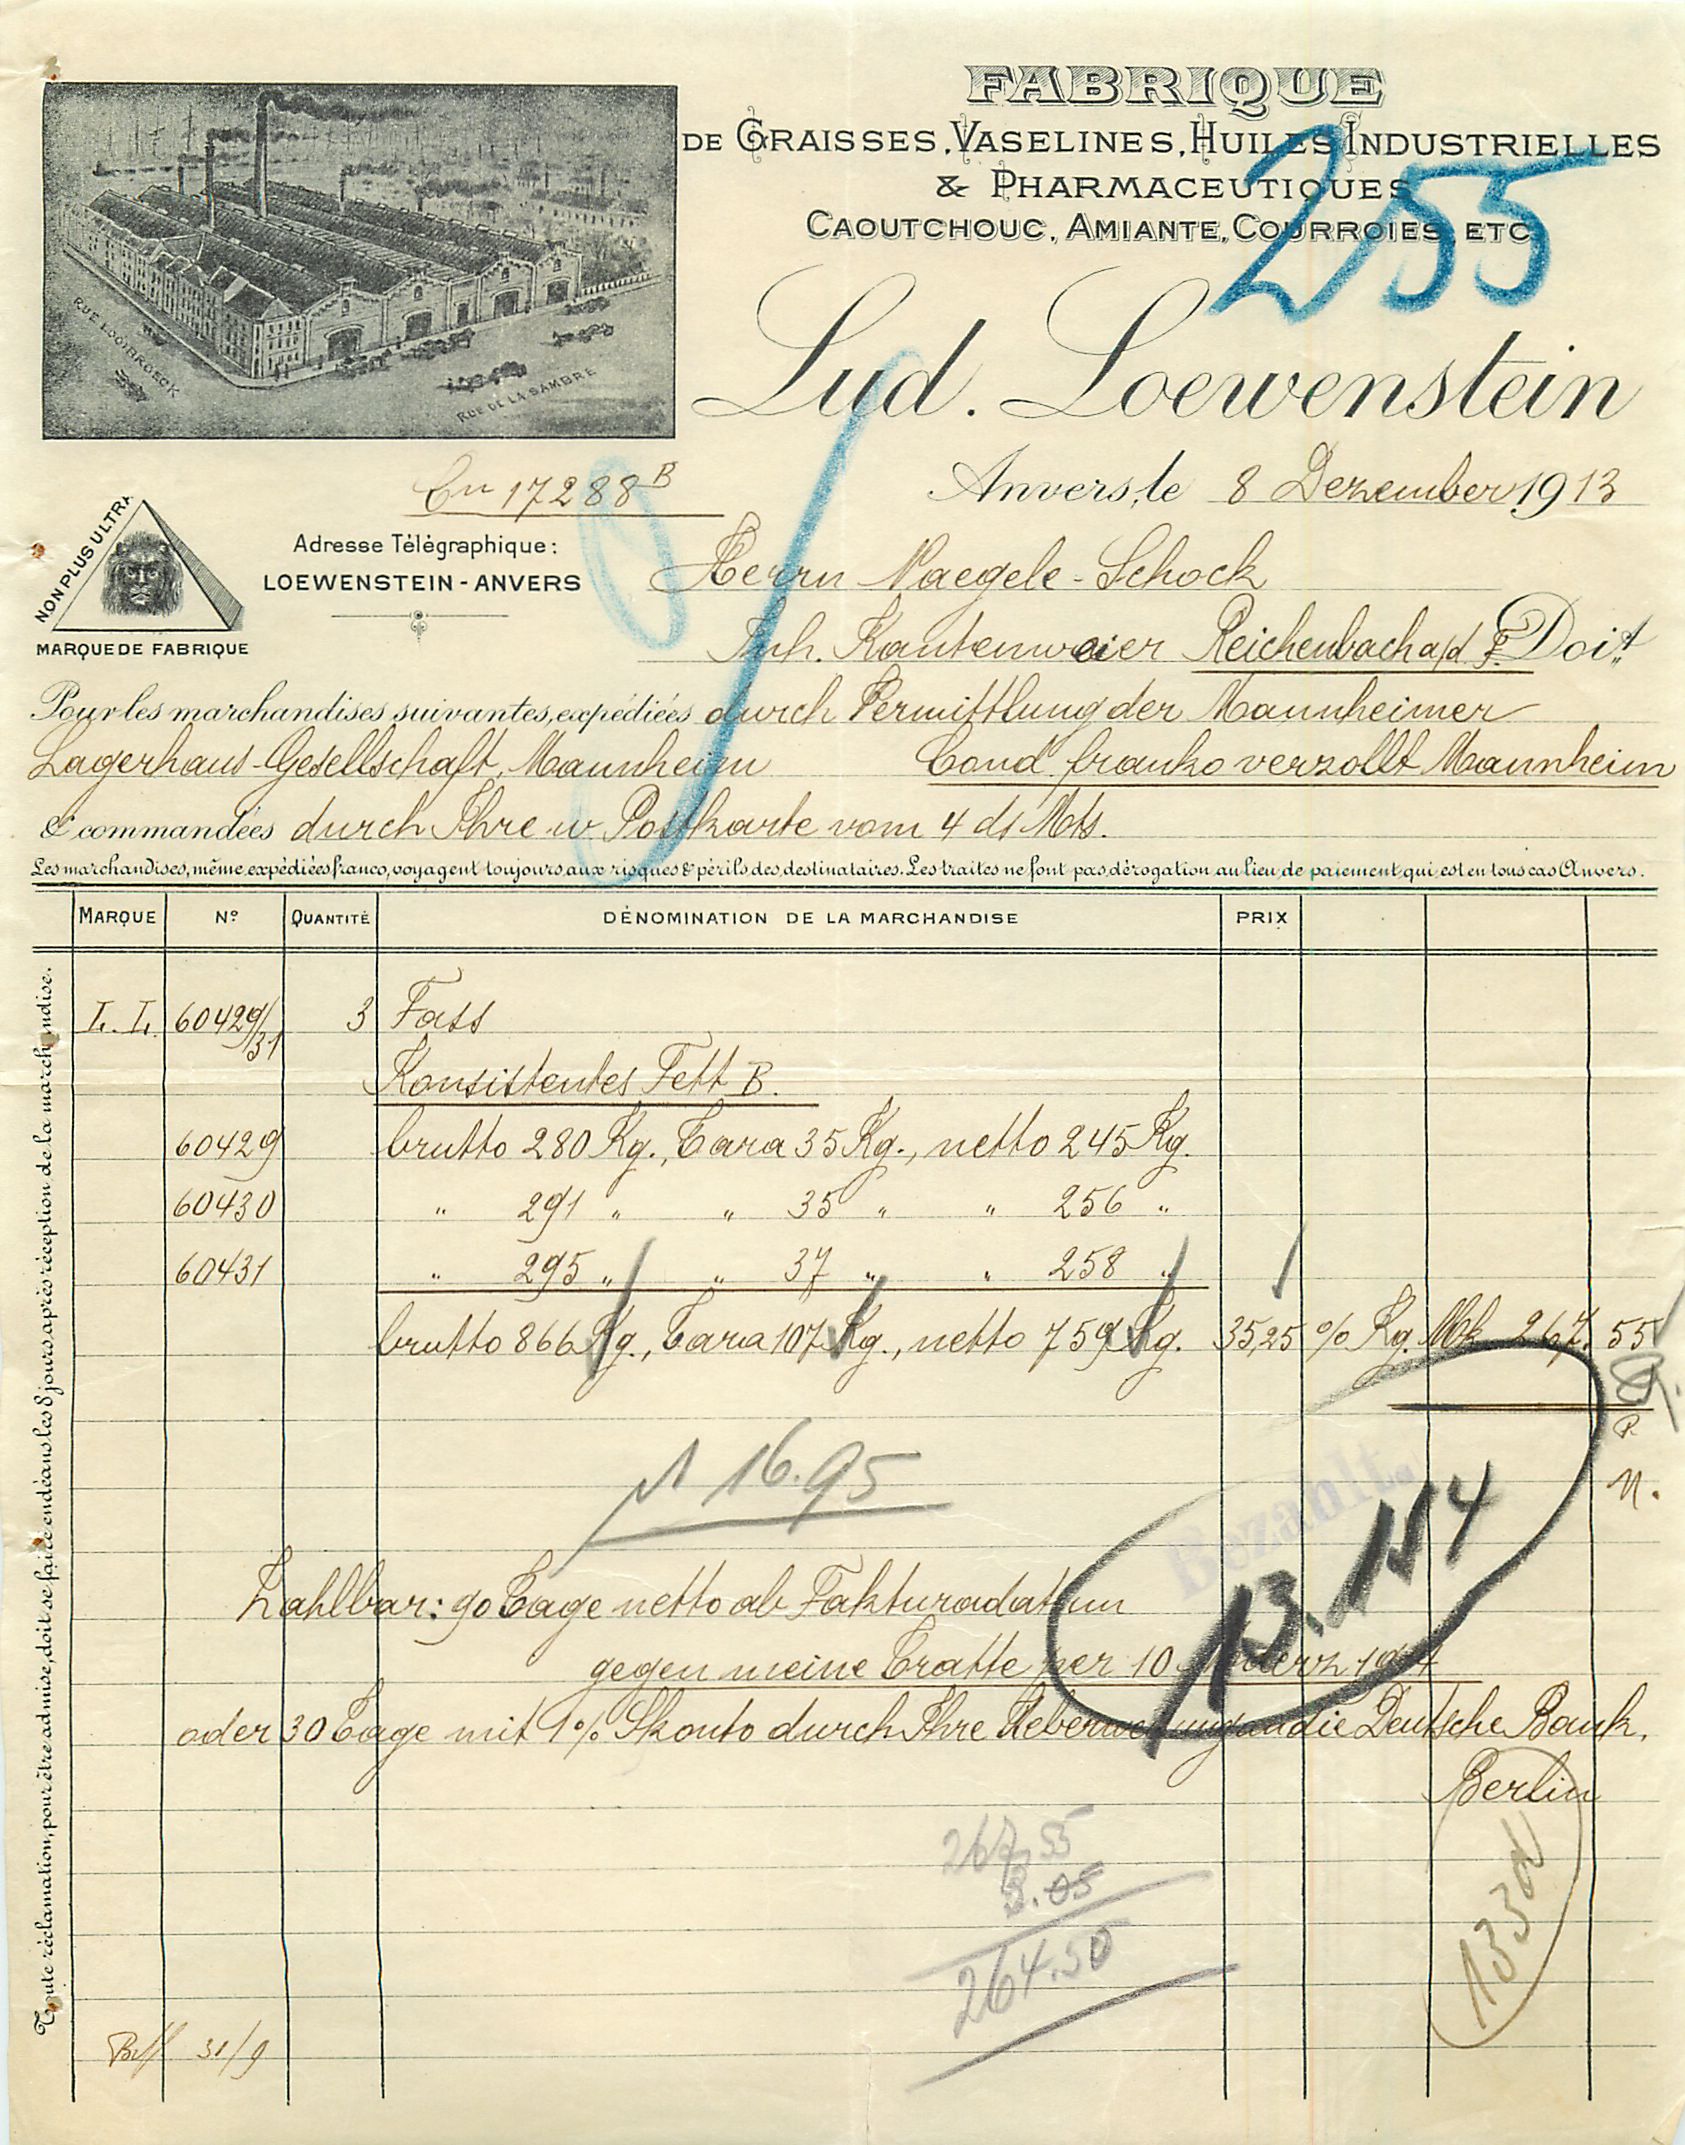 FABRIQUE
DE GRAISSES, VASELINES, HUILES INDUSTRIELLES
& PHARMACEUTIQUES
CAOUTCHOUC, AMIANTE, COURROIES, ETC
255
Lud. Loewenstein
RUE LOOIBROECK
RUE DE LA SAMBRE
Cn 17288 B
Anvers, le 8 Dezember 1913
NON PLUS ULTRA
MARQUE DE FABRIQUE
Adresse Télégraphique:
LOEWENSTEIN-ANVERS
Herrn Naegele-Schock
Inh. Kautenweier Reichenbach a/d F. Doit
Pour les marchandises suivantes, expédiées durch Vermittlung der Mannheimer
Lagerhaus-Gesellschaft, Mannheim Cond. franko verzollt Mannheim
& commandées durch Ihre w Postkarte vom 4 ds Mts.
Les marchandises, même expédiées franco, voyagent toujours aux risques & périls des destinataires. Les traites ne font pas dérogation au lieu de paiement qui est en tous cas Anvers.
MARQUE Nº QUANTITÉ DÉNOMINATION DE LA MARCHANDISE PRIX
L. L. 60429/31 3 Fass
Konsistentes Fett B.
60429 brutto 280 Kg., Tara 35 Kg., netto 245 Kg.
60430 " 291 " " 35 " " 256 "
60431 " 295 " " 37 " " 258 "
brutto 866 Kg., Tara 107 Kg., netto 759 Kg. 35,25 % Kg. Mk 267. 55
P.
N.
16.95
Bezahlt
13. 1 14
Zahlbar: 90 Tage netto ab Fakturadatum
gegen meine Tratte per 10 Maerz 1914
oder 30 Tage mit 1% Skonto durch Ihre Ueberweisung an die Deutsche Bank,
Berlin
267.55
3.05
264.50
31/9
Toute réclamation, pour être admise, doit se faire endéans les 8 jours après réception de la marchandise.